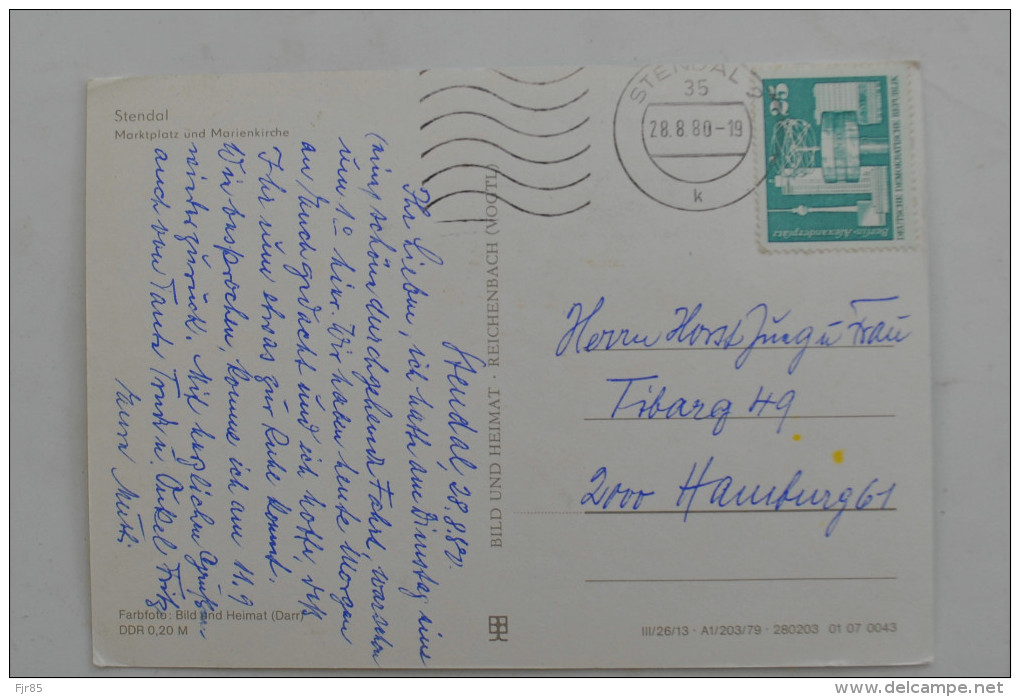 Stendal
Marktplatz und Marienkirche
STENDAL
35
28.8.80-19
k
25
DEUTSCHE DEMOKRATISCHE REPUBLIK
Berlin-Alexanderplatz
Stendal, 28.8.80.
Ihr Lieben, ich hatte am Dienstag eine
schön durchgehende Fahrt, war schon
um 1 hier. Wir haben heute Morgen
an Euch gedacht und ich hoffe, daß
Ihr nun etwas zur Ruhe kommt.
Wie besprochen, komme ich am 11.9
wieder zurück. Mit herzlichen Grüßen
auch von Tante Trude u. Onkel Fritz
Eure Mutti.
BILD UND HEIMAT · REICHENBACH (VOGTL)
Herrn Horst Jung u Frau
Tibarg 49
2000 Hamburg 61
Farbfoto: Bild und Heimat (Darr)
DDR 0,20 M
III/26/13 · A1/203/79 · 280203 01 07 0043
Fjr85
www.delcampe.net